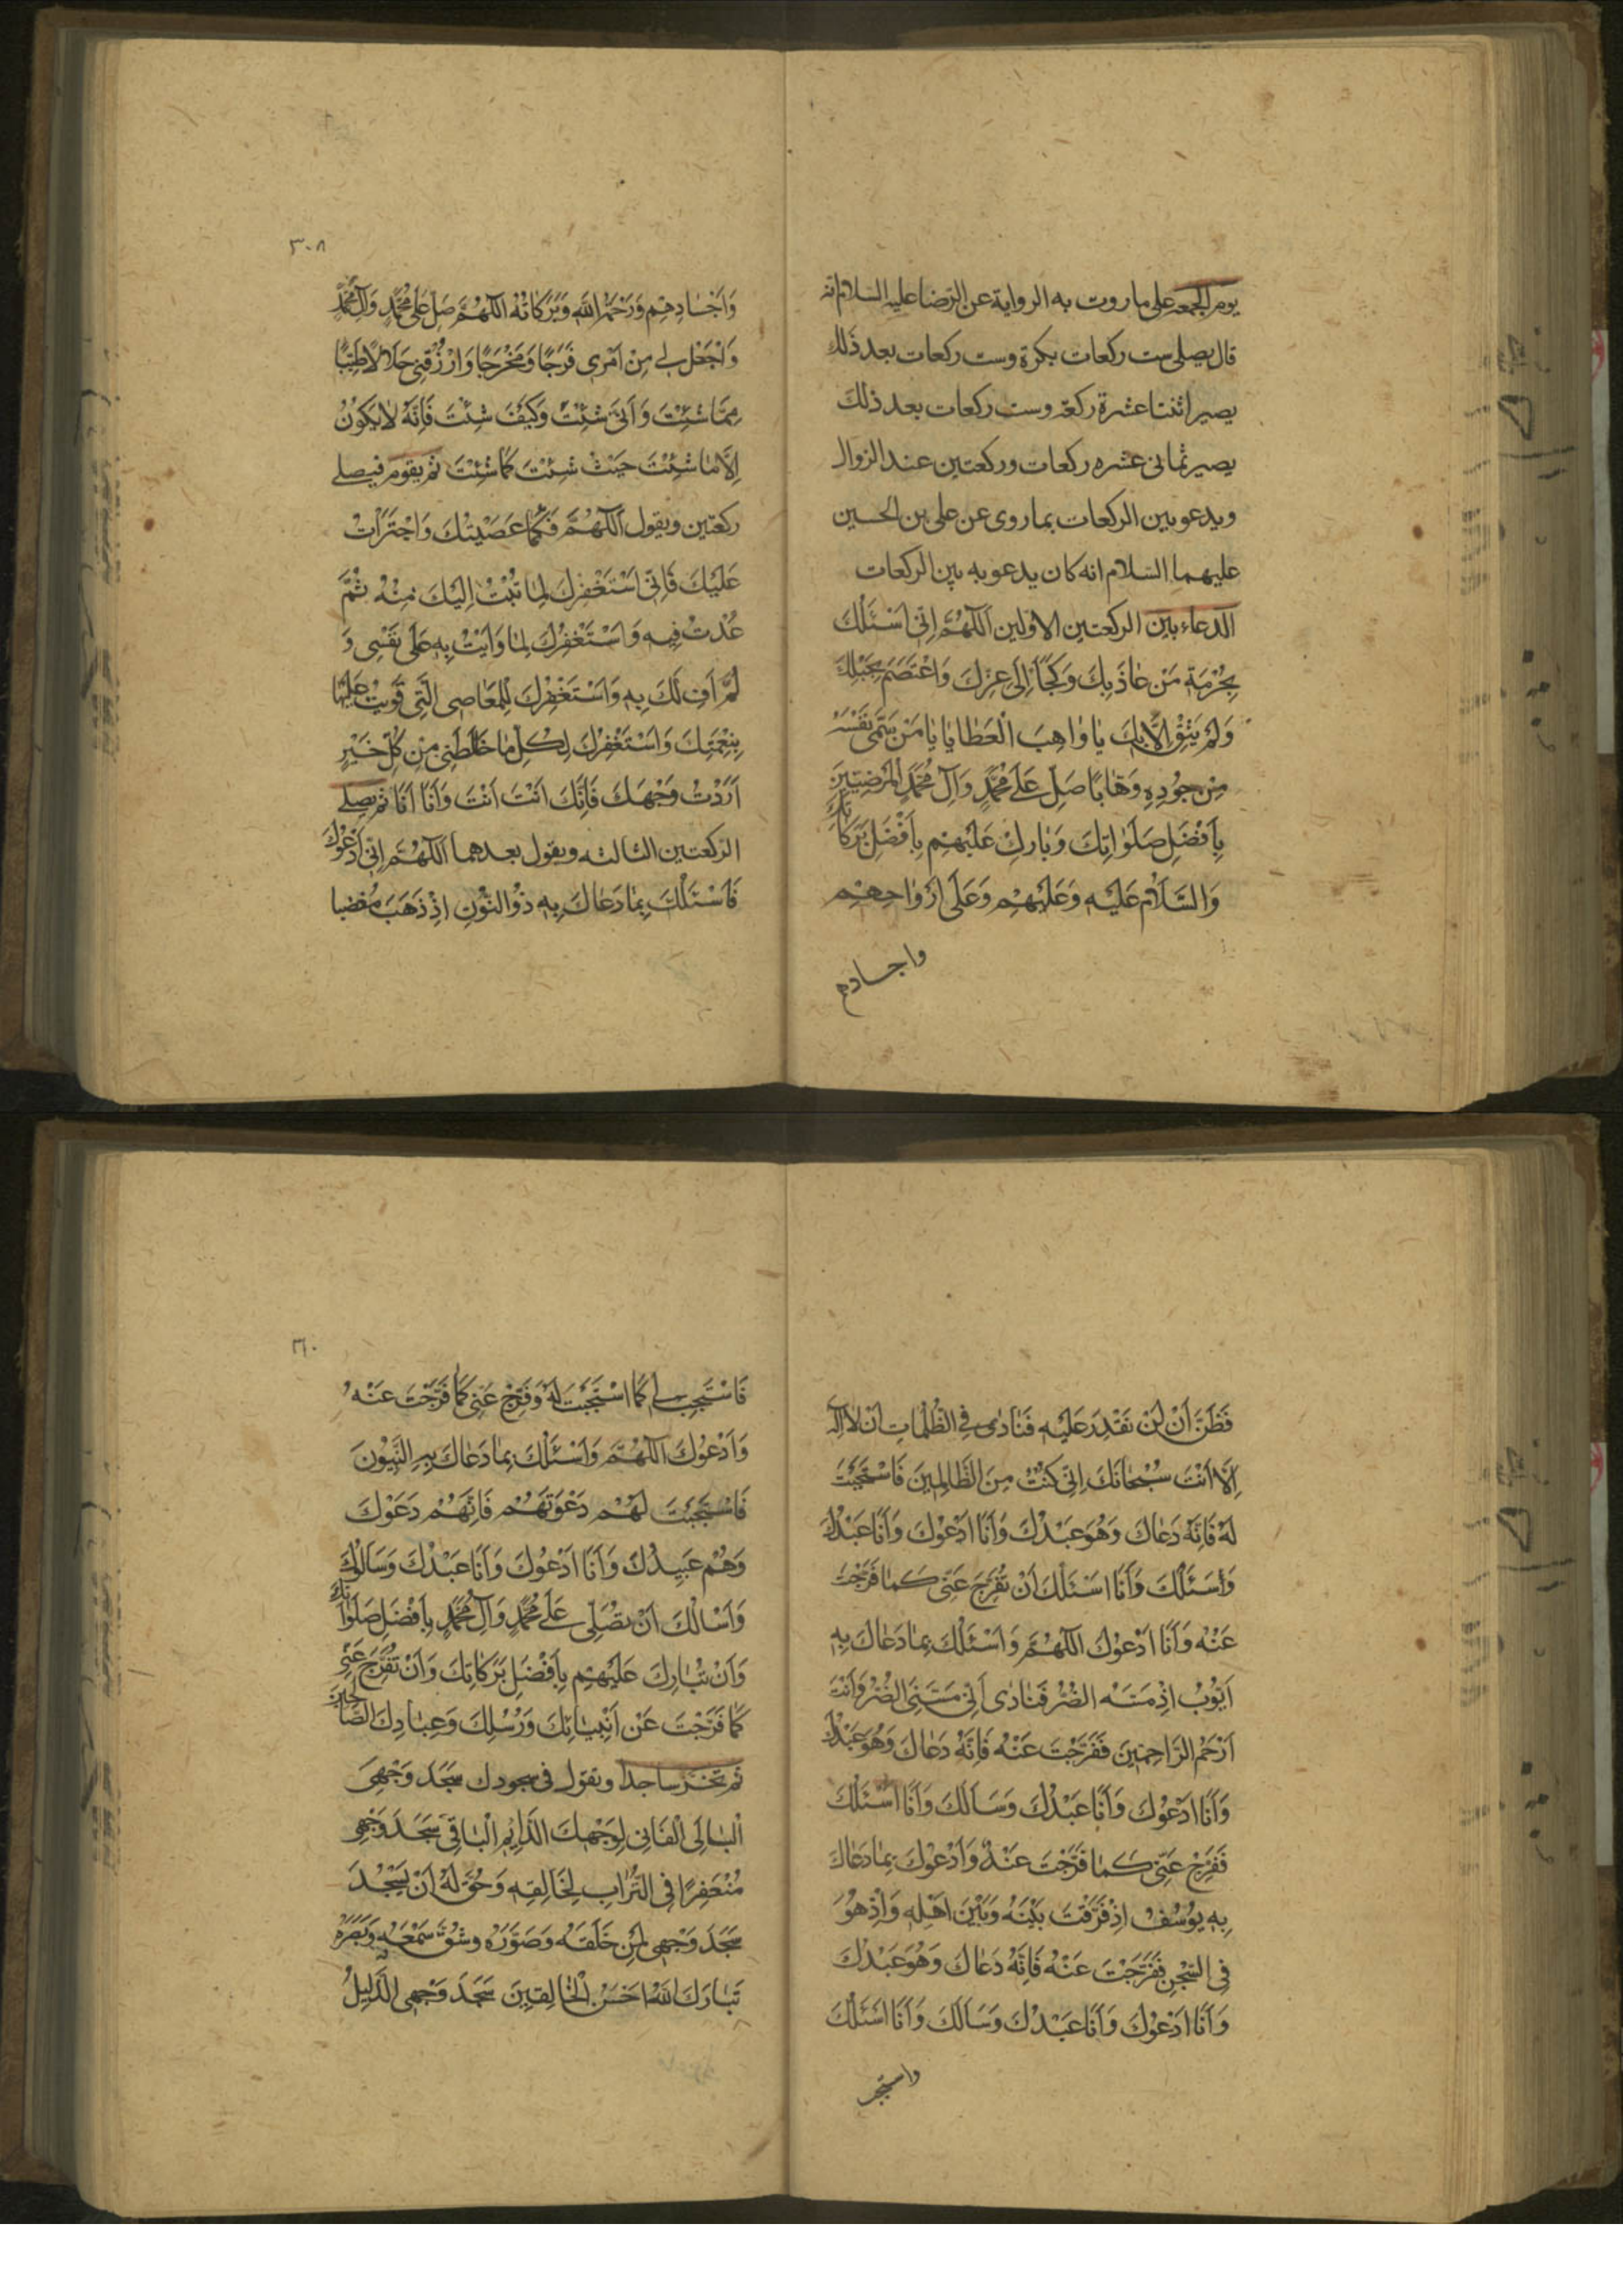 يوم الجمعه على ما روت به الرواية عن الرضا عليه السلام انه
قال يصلى ست ركعات بكرة وست ركعات بعد ذلك
يصير اثنتا عشرة ركعة وست ركعات بعد ذلك
يصير ثمانى عشره ركعات وركعتين عند الزوال
ويدعو بين الركعات بما روى عن على بن الحسين
عليهما السلام انه كان يدعو به بين الركعات
الدعاء بين الركعتين الاولين اَللّهُمَّ اِنّى اَسْئَلُكَ
بِحُرْمَةِ مَنْ عاذَ بِكَ وَلَجَأَ اِلى عِزِّكَ وَاعْتَصَمَ بِحَبْلِكَ
وَلَمْ يَثِقْ اِلّا بِكَ يا واهِبَ الْعَطايا يا مَنْ سَمّى نَفْسَهُ
مِنْ جُودِهِ وَهّابًا صَلِّ عَلى مُحَمَّدٍ وَآلِ مُحَمَّدٍ الْمَرْضِيّينَ
بِاَفْضَلِ صَلَواتِكَ وَبارِكْ عَلَيْهِمْ بِاَفْضَلِ بَرَكاتِكَ
وَالسَّلامُ عَلَيْهِ وَعَلَيْهِمْ وَعَلى اَرْواحِهِمْ
واجسادهم
٣٠٨
وَاَجْسادِهِمْ وَرَحْمَةُ اللّهِ وَبَرَكاتُهُ اَللّهُمَّ صَلِّ عَلى مُحَمَّدٍ وَآلِ مُحَمَّدٍ
وَاجْعَلْ لى مِنْ اَمْرى فَرَجًا وَمَخْرَجًا وَارْزُقْنى حَلالًا طَيِّبًا
مِمّا شِئْتَ وَاَنّى شِئْتَ وَكَيْفَ شِئْتَ فَاِنَّهُ لا يَكُونُ
اِلّا ما شِئْتَ حَيْثُ شِئْتَ كَما شِئْتَ ثم يقوم فيصلى
ركعتين ويقول اَللّهُمَّ فَكَما عَصَيْتُكَ وَاجْتَرَأْتُ
عَلَيْكَ فَاِنّى اَسْتَغْفِرُكَ لِما تُبْتُ اِلَيْكَ مِنْهُ ثُمَّ
عُدْتُ فيهِ وَاَسْتَغْفِرُكَ لِما وَاَيْتُ بِهِ عَلى نَفْسى وَ
لَمْ اَفِ لَكَ بِهِ وَاَسْتَغْفِرُكَ لِلْمَعاصِى الَّتى قَويتُ عَلَيْها
بِنِعْمَتِكَ وَاَسْتَغْفِرُكَ لِكُلِّ ما خالَطَنى مِنْ كُلِّ خَيْرٍ
اَرَدْتُ وَجْهَكَ فَاِنَّكَ اَنْتَ اَنْتَ وَاَنَا اَنَا ثم يصلى
الركعتين الثالثه ويقول بعدهما اَللّهُمَّ اِنّى اَدْعُوكَ
فَاَسْئَلُكَ بِما دَعاكَ بِهِ ذُو النُّونِ اِذْ ذَهَبَ مُغْضِبا
فَظَنَّ اَنْ لَنْ نَقْدِرَ عَلَيْهِ فَنادى فِى الظُّلُماتِ اَنْ لا اِلهَ
اِلّا اَنْتَ سُبْحانَكَ اِنّى كُنْتُ مِنَ الظّالِمينَ فَاسْتَجَبْتَ
لَهُ فَاِنَّهُ دَعاكَ وَهُوَ عَبْدُكَ وَاَنَا اَدْعُوكَ وَاَنَا عَبْدُكَ
وَسَئَلَكَ وَاَنَا اَسْئَلُكَ اَنْ تُفَرِّجَ عَنّى كَما فَرَّجْتَ
عَنْهُ وَاَنَا اَدْعُوكَ اَللّهُمَّ وَاَسْئَلُكَ بِما دَعاكَ بِهِ
اَيُّوبُ اِذْ مَسَّهُ الضُّرُّ فَنادى اَنّى مَسَّنِىَ الضُّرُّ وَاَنْتَ
اَرْحَمُ الرّاحِمينَ فَفَرَّجْتَ عَنْهُ فَاِنَّهُ دَعاكَ وَهُوَ عَبْدُكَ
وَاَنَا اَدْعُوكَ وَاَنَا عَبْدُكَ وَسَاَلَكَ وَاَنَا اَسْئَلُكَ
فَفَرِّجْ عَنّى كَما فَرَّجْتَ عَنْهُ وَاَدْعُوكَ بِما دَعاكَ
بِهِ يُوسُفُ اِذْ فَرَّقْتَ بَيْنَهُ وَبَيْنَ اَهْلِهِ وَاِذْ هُوَ
فِى السِّجْنِ فَفَرَّجْتَ عَنْهُ فَاِنَّهُ دَعاكَ وَهُوَ عَبْدُكَ
وَاَنَا اَدْعُوكَ وَاَنَا عَبْدُكَ وَسَاَلَكَ وَاَنَا اَسْئَلُكَ
٣١٠
فَاسْتَجِبْ لى كَما اسْتَجَبْتَ لَهُ وَفَرِّجْ عَنّى كَما فَرَّجْتَ عَنْهُ
وَاَدْعُوكَ اَللّهُمَّ وَاَسْئَلُكَ بِما دَعاكَ بِهِ النَّبِيُّونَ
فَاسْتَجَبْتَ لَهُمْ دَعْوَتَهُمْ فَاِنَّهُمْ دَعَوْكَ
وَهُمْ عَبيدُكَ وَاَنَا اَدْعُوكَ وَاَنَا عَبْدُكَ وَسَاَلُوكَ
وَاَسْاَلُكَ اَنْ تُصَلِّىَ عَلى مُحَمَّدٍ وَآلِ مُحَمَّدٍ بِاَفْضَلِ صَلَواتِكَ
وَاَنْ تُبارِكَ عَلَيْهِمْ بِاَفْضَلِ بَرَكاتِكَ وَاَنْ تُفَرِّجَ عَنّى
كَما فَرَّجْتَ عَنْ اَنْبِيائِكَ وَرُسُلِكَ وَعِبادِكَ الصّالِحينَ
ثم تخر ساجدا وتقول فى سجودك سَجَدَ وَجْهِىَ
الْبالِى الْفانِى لِوَجْهِكَ الدّائِمِ الْباقى سَجَدَ وَجْهِى
مُتَعَفِّرًا فِى التُّرابِ لِخالِقِهِ وَحُقَّ لَهُ اَنْ يَسْجُدَ
سَجَدَ وَجْهِى لِمَنْ خَلَقَهُ وَصَوَّرَهُ وَشَقَّ سَمْعَهُ وَبَصَرَهُ
تَبارَكَ اللّهُ اَحْسَنُ الْخالِقينَ سَجَدَ وَجْهِى الذَّليلُ